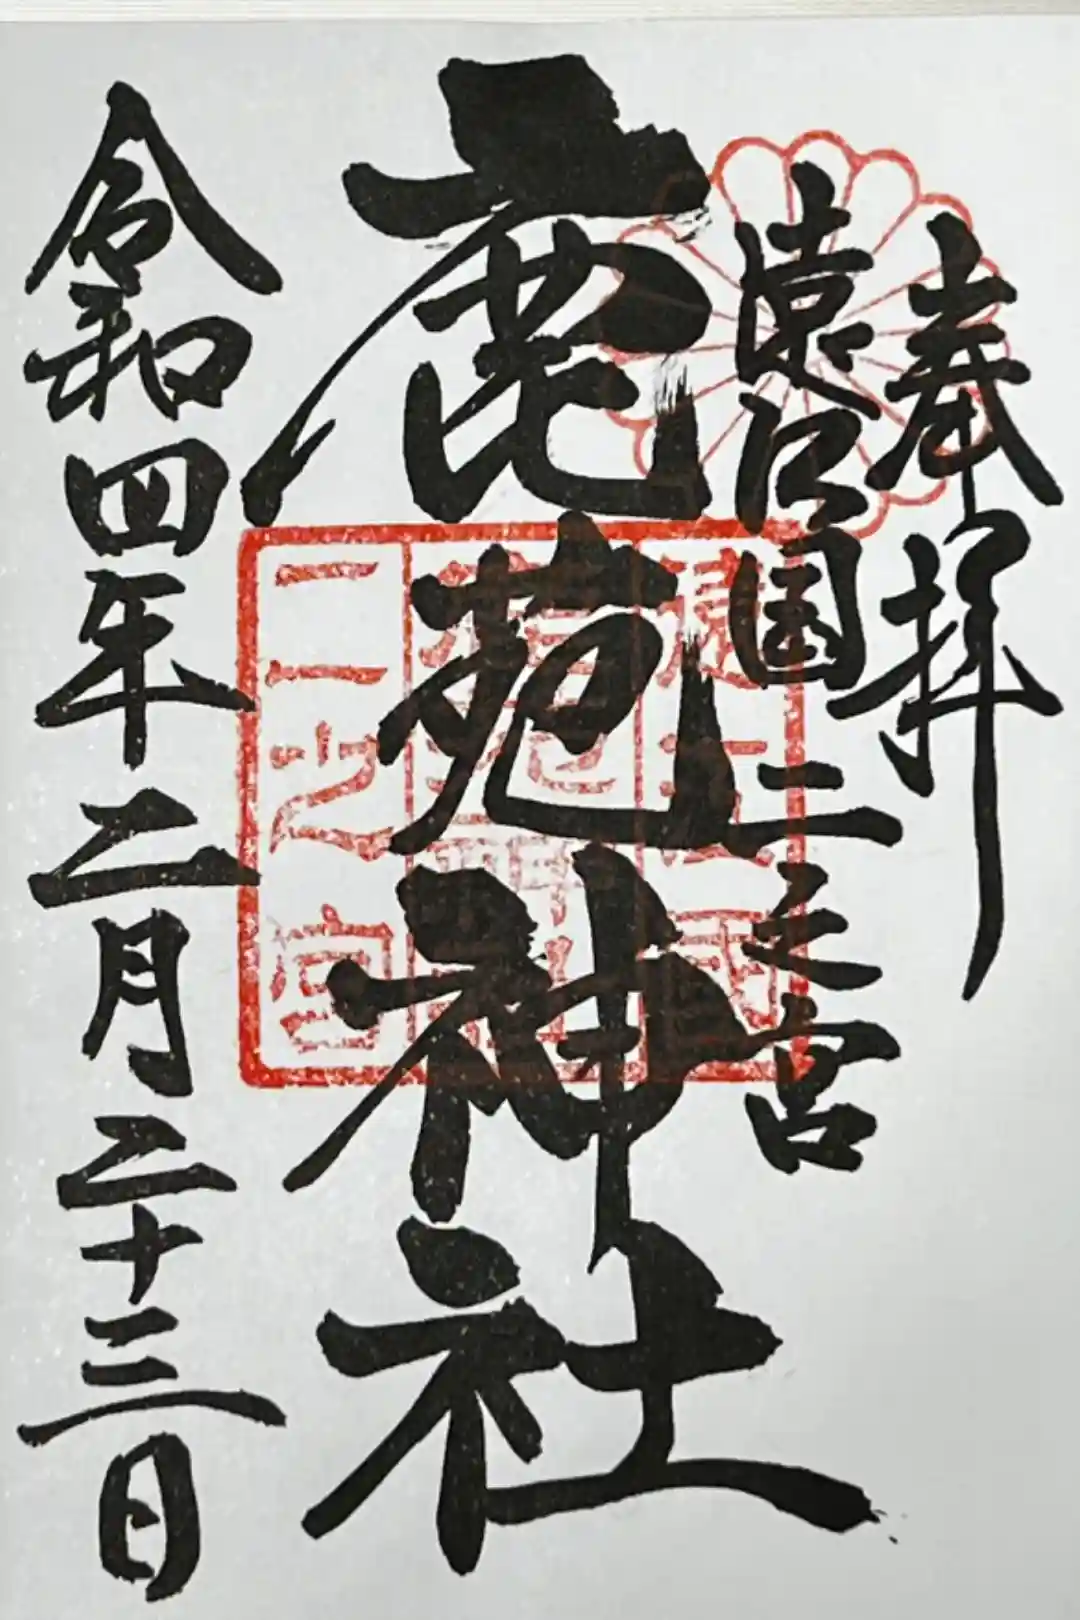 奉拝
遠江国二之宮
鹿苑神社
令和四年二月二十三日
遠江国
鹿苑神社
二之宮